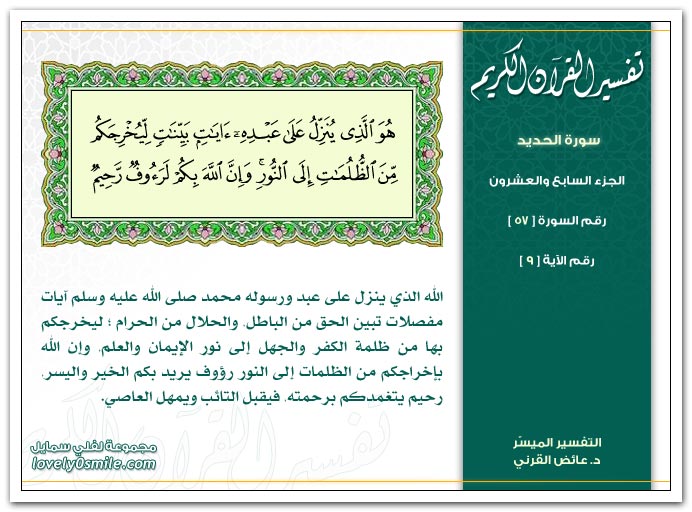 تفسير القرآن الكريم
سورة الحديد
الجزء السابع والعشرون
رقم السورة [ ٥٧ ]
رقم الآية [ ٩ ]
هُوَ ٱلَّذِى يُنَزِّلُ عَلَىٰ عَبْدِهِۦٓ ءَايَٰتٍۭ بَيِّنَٰتٍ لِّيُخْرِجَكُم
مِّنَ ٱلظُّلُمَٰتِ إِلَى ٱلنُّورِ ۚ وَإِنَّ ٱللَّهَ بِكُمْ لَرَءُوفٌ رَّحِيمٌ
الله الذي ينزل على عبد ورسوله محمد صلى الله عليه وسلم آيات
مفصلات تبين الحق من الباطل، والحلال من الحرام ؛ ليخرجكم
بها من ظلمة الكفر والجهل إلى نور الإيمان والعلم، وإن الله
بإخراجكم من الظلمات إلى النور رؤوف يريد بكم الخير واليسر،
رحيم يتغمدكم برحمته، فيقبل التائب ويمهل العاصي.
التفسير الميسّر
د. عائض القرني
مجموعة لفلي سمايل
lovely0smile.com
تفسير القرآن الكريم